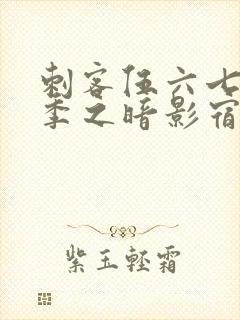 刺客伍六七
季之暗影宿
紫玉轻霜